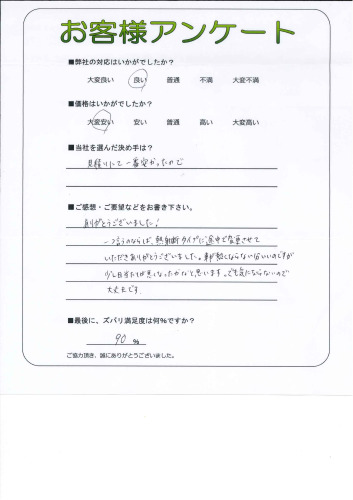 お客様アンケート
■弊社の対応はいかがでしたか?
大変良い 良い 普通 不満 大変不満
■価格はいかがでしたか?
大変安い 安い 普通 高い 大変高い
■当社を選んだ決め手は?
見積りにて一番安かったので
■ご感想・ご要望などをお書き下さい。
ありがとうございました!
一つ言うのならば、熱射断タイプに途中で変更させて
いただきありがとうございました。車が熱くならない位いいのですが
少し日当たりが悪くなったかなと思います。でも気にならないので
大丈夫です。
■最後に、ズバリ満足度は何%ですか?
90 %
ご協力頂き、誠にありがとうございました。